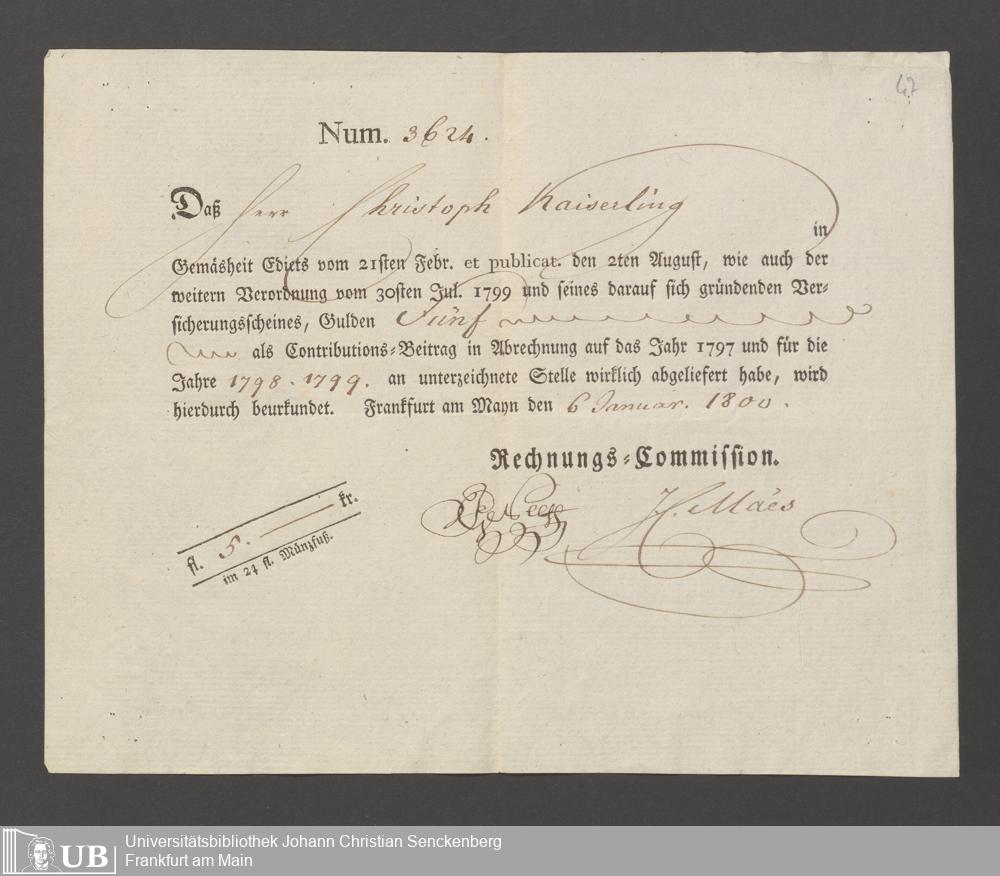 47
Num. 3624.
Daß Herr Christoph Kaiserling
in
Gemäsheit Edicts vom 21sten Febr. et publicat. den 2ten August, wie auch der
weitern Verordnung vom 30sten Jul. 1799 und seines darauf sich gründenden Ver-
sicherungsscheines, Gulden Fünf
als Contributions-Beitrag in Abrechnung auf das Jahr 1797 und für die
Jahre 1798. 1799. an unterzeichnete Stelle wirklich abgeliefert habe, wird
hierdurch beurkundet. Frankfurt am Mayn den 6 Januar. 1800.
Rechnungs-Commission.
H. Mäes
fl. 5. kr.
im 24 fl. Münzfuß.
UB
Universitätsbibliothek Johann Christian Senckenberg
Frankfurt am Main